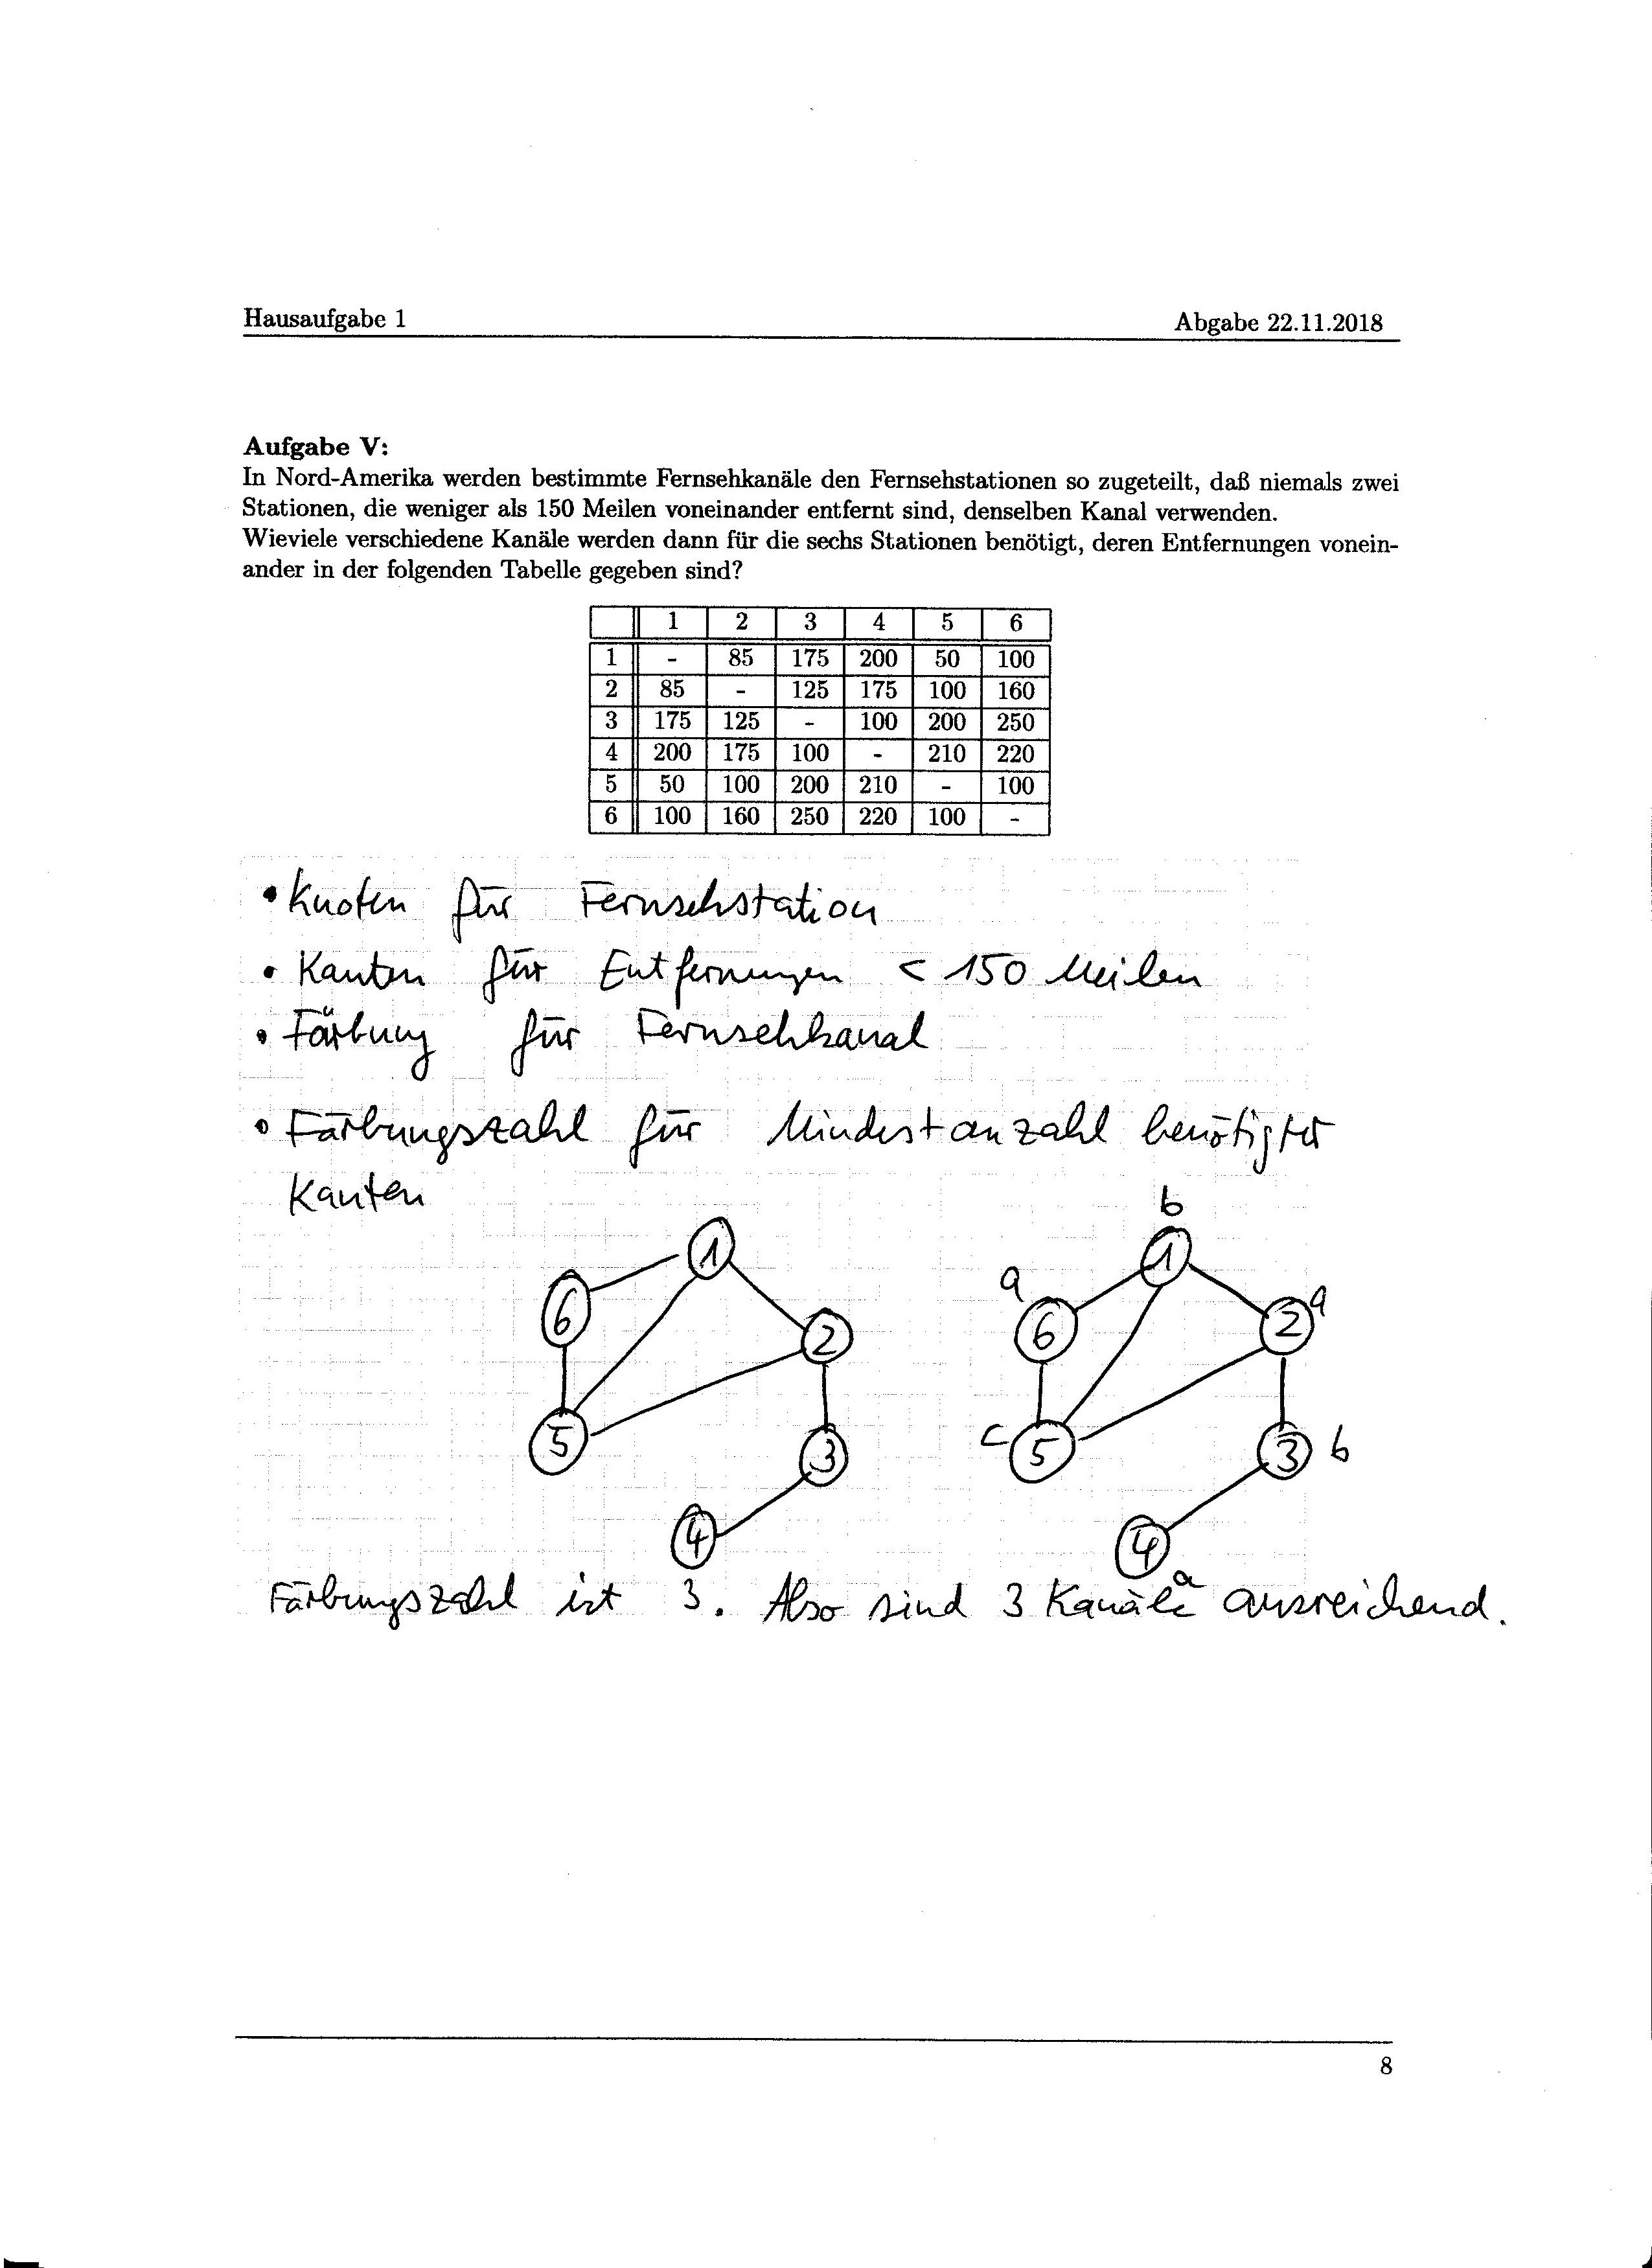 Hausaufgabe 1 Abgabe 22.11.2018
Aufgabe V:
In Nord-Amerika werden bestimmte Fernsehkanäle den Fernsehstationen so zugeteilt, daß niemals zwei
Stationen, die weniger als 150 Meilen voneinander entfernt sind, denselben Kanal verwenden.
Wieviele verschiedene Kanäle werden dann für die sechs Stationen benötigt, deren Entfernungen vonein-
ander in der folgenden Tabelle gegeben sind?
1 2 3 4 5 6
1 - 85 175 200 50 100
2 85 - 125 175 100 160
3 175 125 - 100 200 250
4 200 175 100 - 210 220
5 50 100 200 210 - 100
6 100 160 250 220 100 -
• Knoten für Fernsehstation
• Kanten für Entfernungen < 150 Meilen
• Färbung für Fernsehkanal
• Färbungszahl für Mindestanzahl benötigter
Kanten
1
6
2
5
3
4
b
1
a
6
2 a
c 5
3 b
4
a
Färbungszahl ist 3. Also sind 3 Kanäle ausreichend.
8